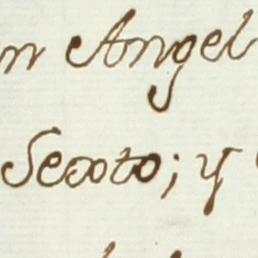 n Angel
Sexto; y